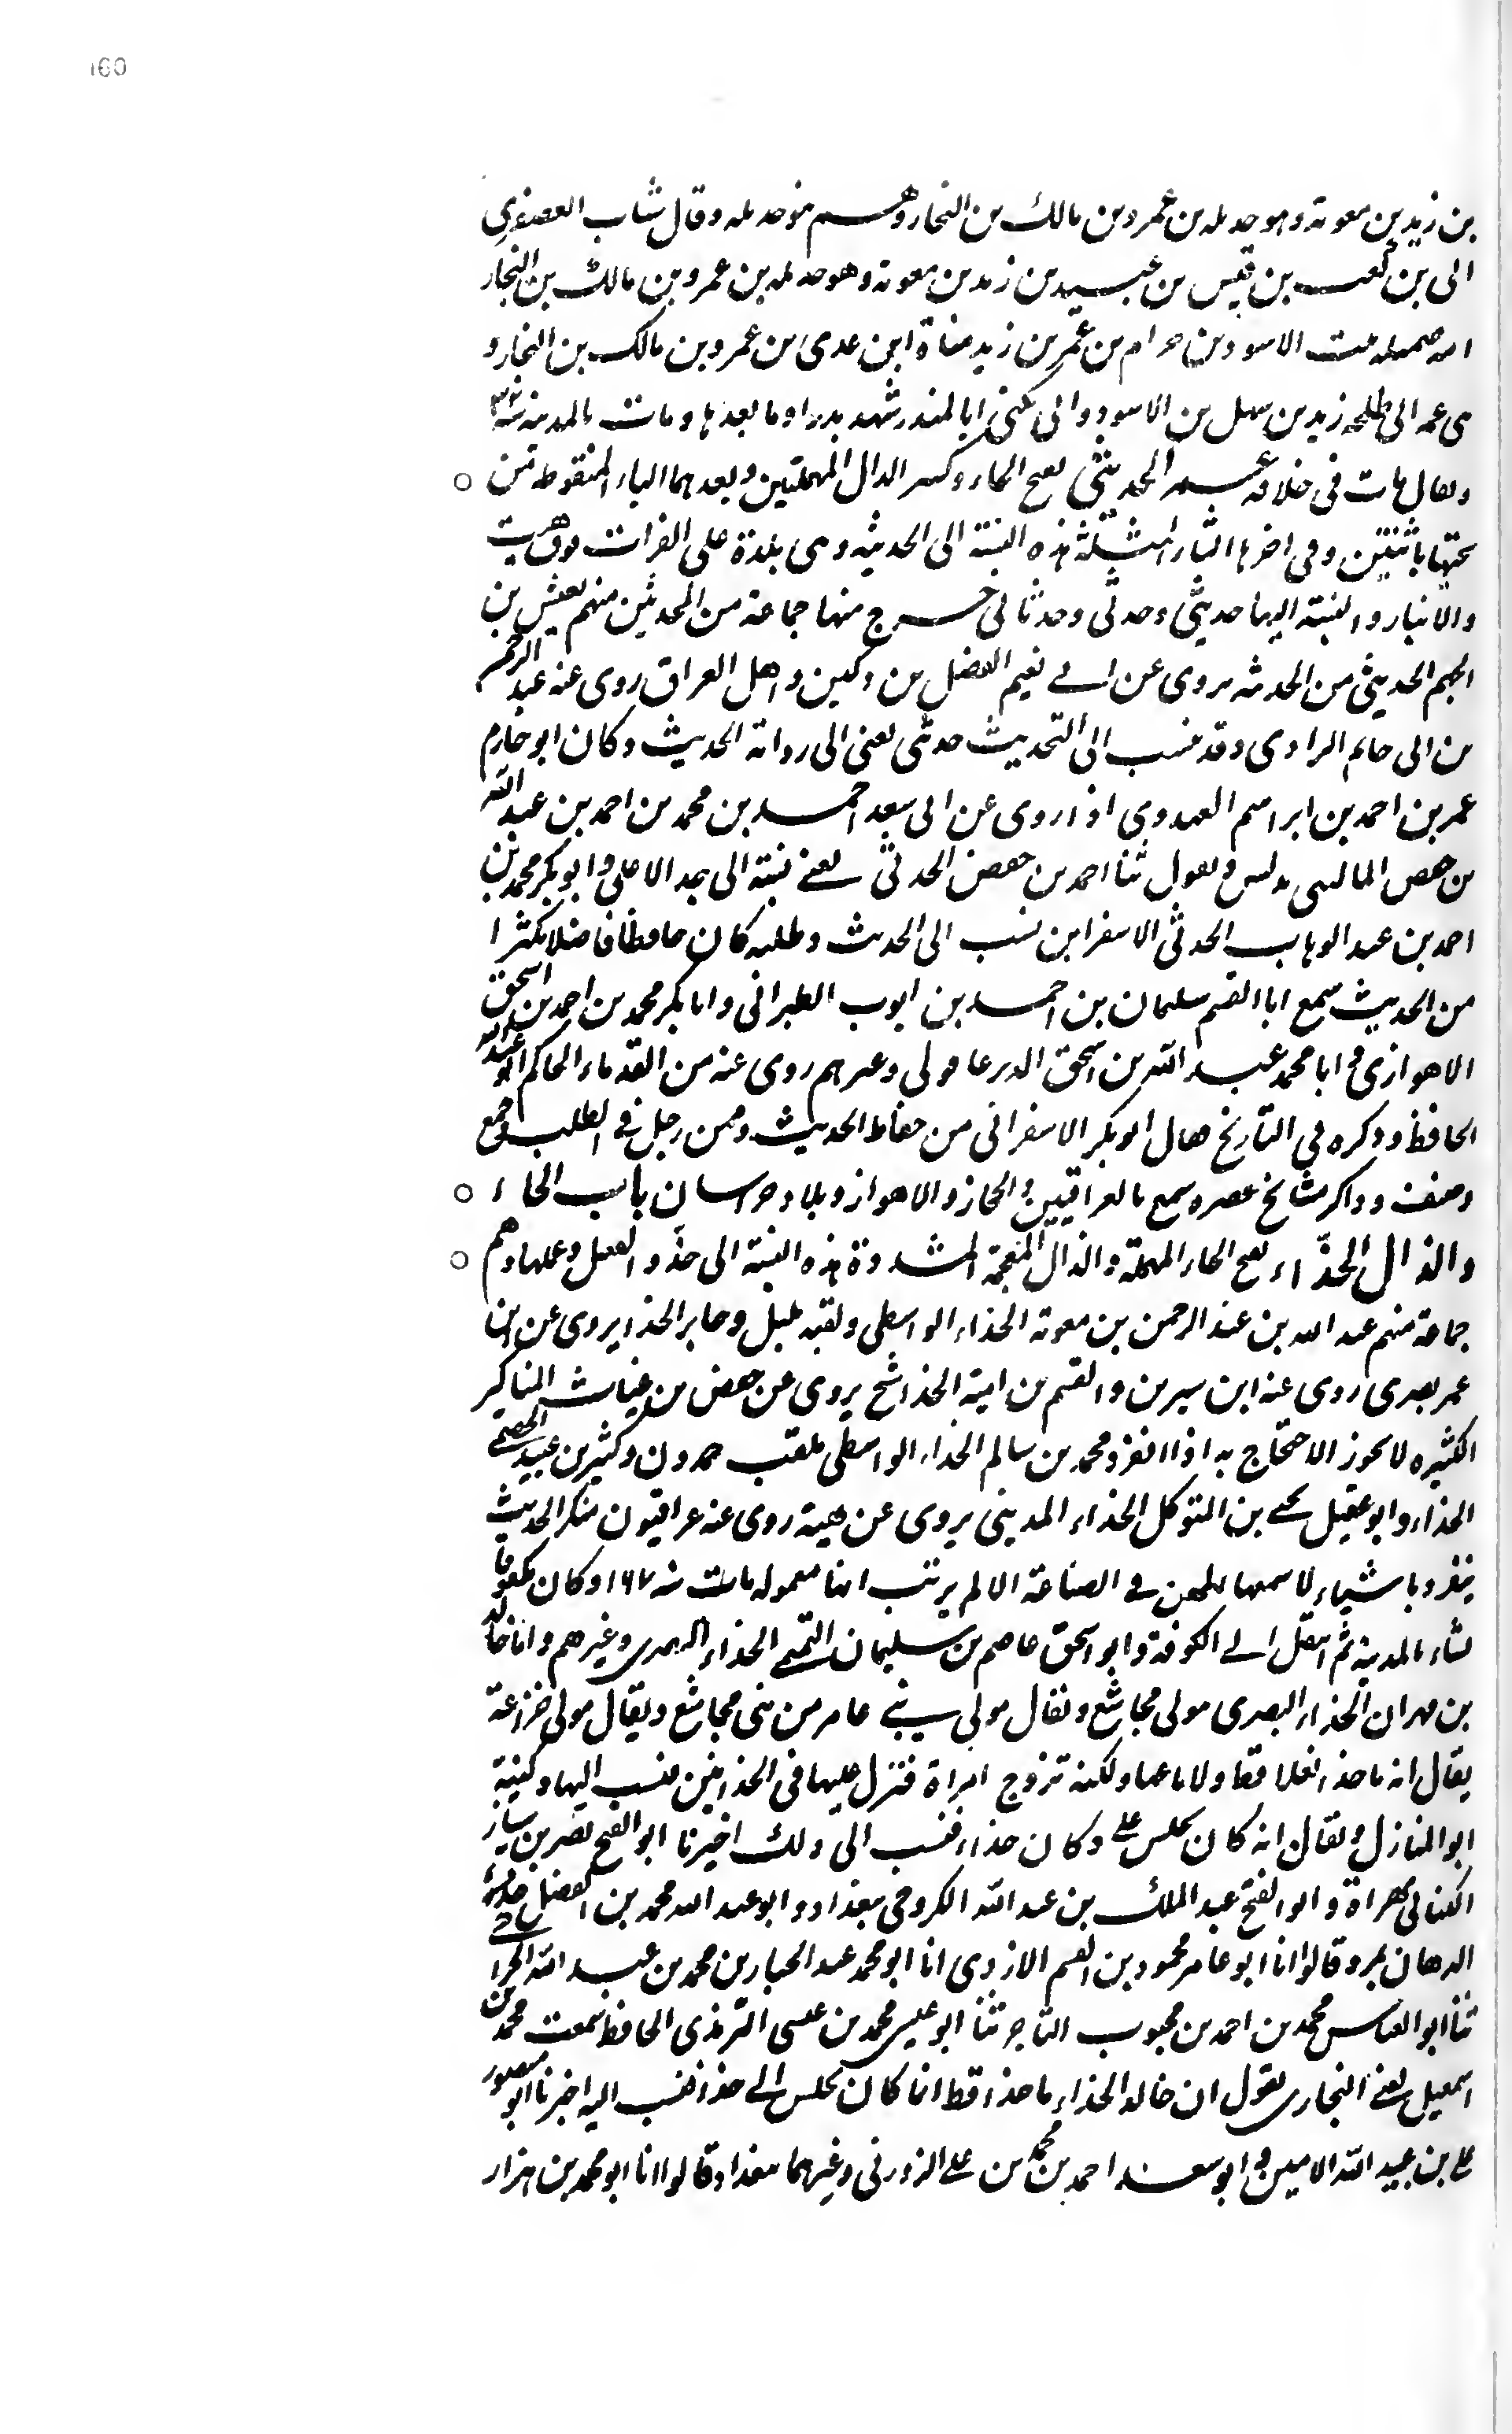 160
بن زيد بن معوية وهو حديله بن عمرو بن مالك بن النجار وهم بنو حديله وقال شباب العصفرى
ابى بن كعب بن قيس بن عبيد بن زيد بن معوية وهو حديله بن عمرو بن مالك بن النجار
امه صهيله بنت الاسود بن حرام بن عمر بن زيد مناة ابن عدى بن عمرو بن مالك بن النجار و
هى عمه ابى طلحه زيد بن سهل بن الاسود وابى يكنى ابا المنذر شهد بدرا وما بعدها ومات بالمدينة
ويقال مات فى خلافه عمر الحديثى بفتح الحاء وكسر الدال المهملتين وبعدهما الياء المنقوطه من
تحتها باثنتين وفى اخرها الثاء المثلثة هذه النسبة الى الحديثه وهى بلدة على الفرات فوق هيت
والانبار والنسبة اليها حديثى وحدثى وحدثانى خرج منها جماعة من المحدثين منهم يعيش بن
الجهم الحديثى من الحديثه يروى عن ابى نعيم الفضل بن دكين واهل العراق روى عنه عبد الرحمن
بن ابى حاتم الرازى وقد ينسب الى التحديث حدثى يعنى الى رواية الحديث وكان ابو حازم
عمر بن احمد بن ابراهيم العبدوى اذا روى عن ابى سعد احمد بن محمد بن احمد بن عبد الله
بن حفص المالينى يدلس ويقول ثنا احمد بن حفص الحدثى يعنى نسبة الى جده الاعلى وابو بكر محمد بن
احمد بن عبد الوهاب الحدثى الاسفراىن نسب الى الحديث وطلبه كان حافظا فاضلا مكثرا
من الحديث سمع ابا القسم سليمان بن احمد بن ايوب الطبرانى وابا بكر محمد بن احمد بن اسحق
الاهوازى وابا محمد عبد الله بن اسحق الديرعاقولى وغيرهم روى عنه من القدماء الحاكم ابو عبد الله
الحافظ وذكره فى التاريخ فقال ابو بكر الاسفرانى من حفاظ الحديث وممن رحل فى الطلب وجمع
وصنف وذاكر مشايخ عصره سمع بالعراقيين والحجاز والاهواز وبلاد خراسان باب الحاء
والذال الحذّاء بفتح الحاء المهملة والذال المعجمة المشددة هذه النسبة الى حذو النعل وعملها وهم
جماعة منهم عبد الله بن عبد الرحمن بن معوية الحذاء الواسطى ولقبه بلبل وجابر الحذا يروى عن ابن
عمر بصرى روى عنه ابن سيرين والقسم بن امية الحذا شيخ يروى عن حفص بن غياث المناكير
الكثيره لا يجوز الاحتجاج به اذا انفرد ومحمد بن سالم الحذاء الواسطى يلقب حمدون وكثير بن عبيد الحمصى
الحذاء وابو عقيل يحيى بن المتوكل الحذاء المدينى يروى عن بهية روى عنه عراقيون منكر الحديث
ينفرد باشياء لا يسمعها الممعن فى الصناعة الا لم يرتب انها معموله مات سنه ١٦٧ وكان مكفوفا
نشاء بالمدينة ثم انتقل الى الكوفة وابو اسحق عاصم بن سليمان التميمى الحذاء البصرى وغيرهم واما خالد
بن مهران الحذاء البصرى مولى مجاشع ويقال مولى بنى عامر من بنى مجاشع ويقال مولى خزاعة
يقال انه ما حذا نعلا قط ولا باعها ولكنه تزوج امراة فنزل عليها فى الحذائين فنسب اليها وكنيته
ابو المنازل ويقال انه كان يجلس على دكان حذاء فنسب الى ذلك اخبرنا ابو الفتح نصر بن سيار
الكنانى بهراة وابو الفتح عبد الملك بن عبد الله الكروخى ببغداد وابو عبد الله محمد بن الفضل
الدهان بمرو قالوا انا ابو عامر محمود بن القسم الازدى انا ابو محمد عبد الجبار بن محمد بن عبد الله الجراحى
ثنا ابو العباس محمد بن احمد بن محبوب التاجر ثنا ابو عيسى محمد بن عيسى الترمذى الحافظ سمعت محمد بن
اسمعيل يعنى البخارى يقول ان خالد الحذاء ما حذا قط انما كان يجلس الى حذا فنسب اليه اخبرنا ابو منصور
على بن عبيد الله الامين وابو سعد احمد بن محمد بن على الزوزنى وغيرهما ببغداد قالوا انا ابو محمد بن هزار